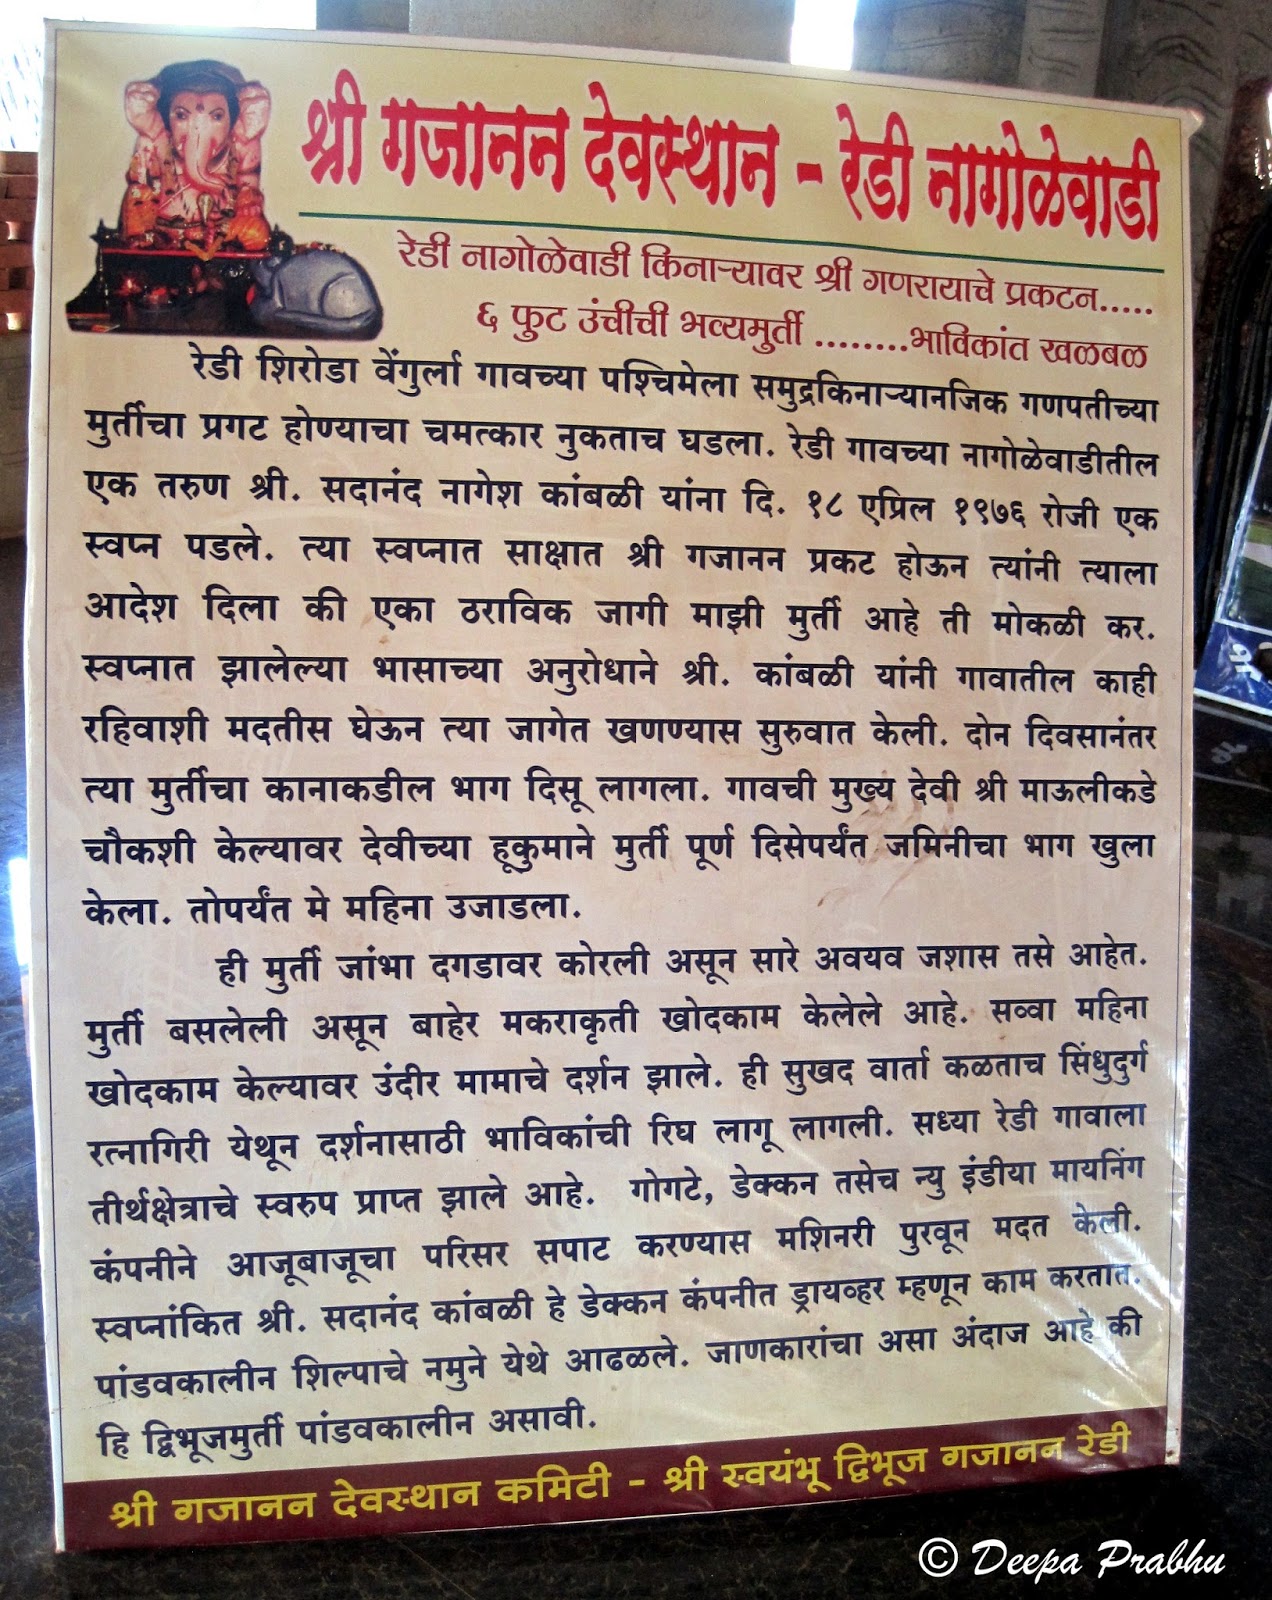 श्री गजानन देवस्थान - रेडी नागोळेवाडी
रेडी नागोळेवाडी किनाऱ्यावर श्री गणरायाचे प्रकटन.....
६ फुट उंचीची भव्यमुर्ती ........भाविकांत खळबळ
रेडी शिरोडा वेंगुर्ला गावच्या पश्चिमेला समुद्रकिनाऱ्यानजिक गणपतीच्या
मुर्तीचा प्रगट होण्याचा चमत्कार नुकताच घडला. रेडी गावच्या नागोळेवाडीतील
एक तरुण श्री. सदानंद नागेश कांबळी यांना दि. १८ एप्रिल १९७६ रोजी एक
स्वप्न पडले. त्या स्वप्नात साक्षात श्री गजानन प्रकट होऊन त्यांनी त्याला
आदेश दिला की एका ठराविक जागी माझी मुर्ती आहे ती मोकळी कर.
स्वप्नात झालेल्या भासाच्या अनुरोधाने श्री. कांबळी यांनी गावातील काही
रहिवाशी मदतीस घेऊन त्या जागेत खणण्यास सुरुवात केली. दोन दिवसानंतर
त्या मुर्तीचा कानाकडील भाग दिसू लागला. गावची मुख्य देवी श्री माऊलीकडे
चौकशी केल्यावर देवीच्या हूकुमाने मुर्ती पूर्ण दिसेपर्यंत जमिनीचा भाग खुला
केला. तोपर्यंत मे महिना उजाडला.
ही मुर्ती जांभा दगडावर कोरली असून सारे अवयव जशास तसे आहेत.
मुर्ती बसलेली असून बाहेर मकराकृती खोदकाम केलेले आहे. सव्वा महिना
खोदकाम केल्यावर उंदीर मामाचे दर्शन झाले. ही सुखद वार्ता कळताच सिंधुदुर्ग
रत्नागिरी येथून दर्शनासाठी भाविकांची रिघ लागू लागली. सध्या रेडी गावाला
तीर्थक्षेत्राचे स्वरुप प्राप्त झाले आहे. गोगटे, डेक्कन तसेच न्यु इंडीया मायनिंग
कंपनीने आजूबाजूचा परिसर सपाट करण्यास मशिनरी पुरवून मदत केली.
स्वप्नांकित श्री. सदानंद कांबळी हे डेक्कन कंपनीत ड्रायव्हर म्हणून काम करतात.
पांडवकालीन शिल्पाचे नमुने येथे आढळले. जाणकारांचा असा अंदाज आहे की
हि द्विभूजमुर्ती पांडवकालीन असावी.
श्री गजानन देवस्थान कमिटी - श्री स्वयंभू द्विभूज गजानन रेडी
© Deepa Prabhu